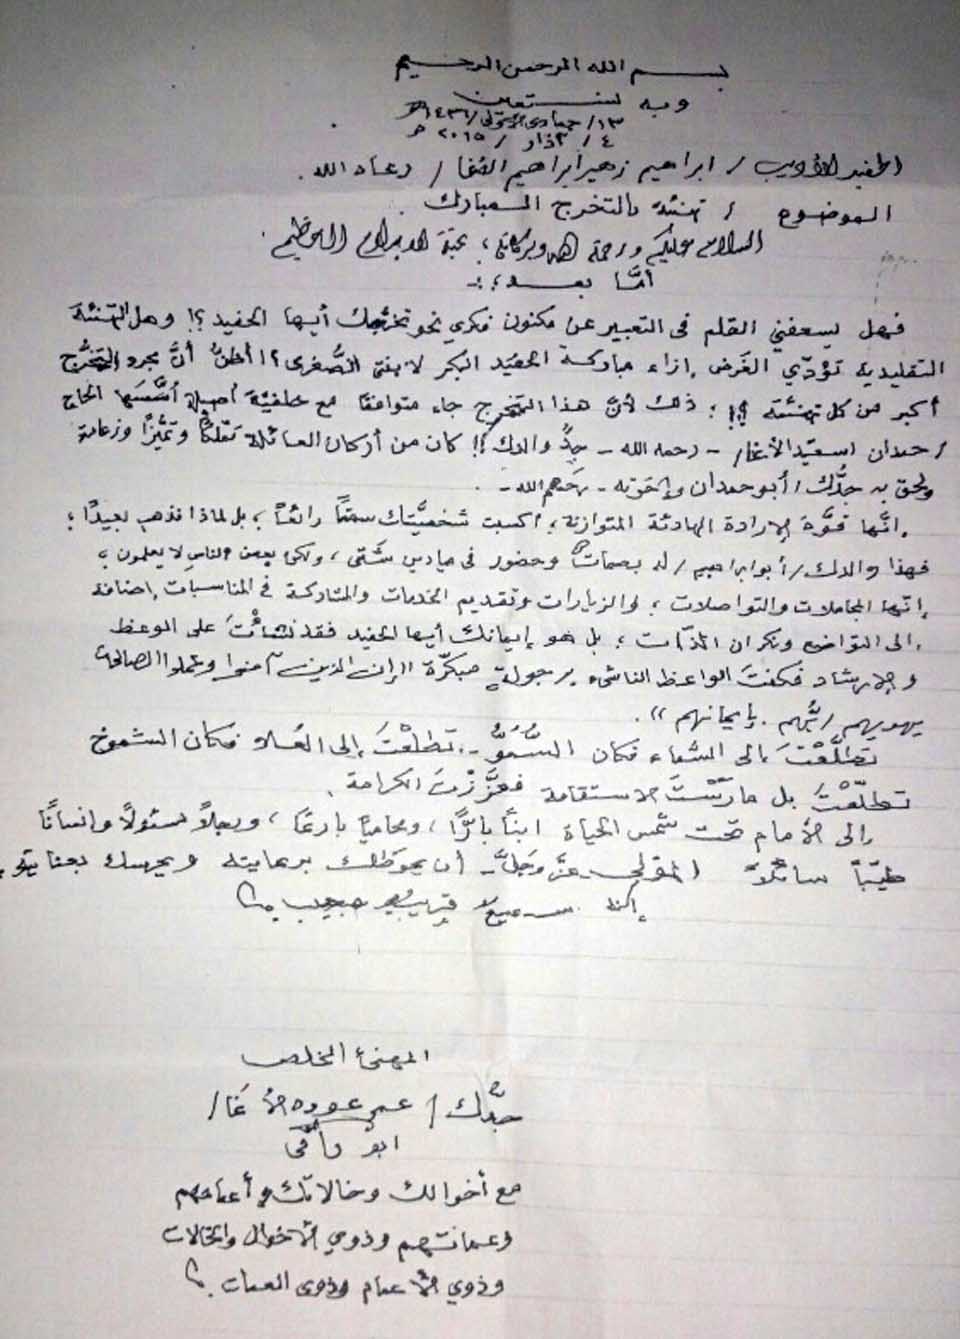 بسم الله الرحمن الرحيم
وبه نستعين
١٣/ جمادى الأولى/ ١٤٣٦هـ
٤ / آذار / ٢٠١٥ م
الحفيد الأديب / ابراهيم زهير ابراهيم الأغا / رعاه الله.
الموضوع / تهنئة بالتخرج المبارك
السلام عليكم ورحمة الله وبركاته؛ تحية الاسلام العظيم.
أمَّا بعد؛:-
فهل يسعفني القلم في التعبير عن مكنون فكري نحو تخرُّجك أيها الحفيد؟! وهل التهنئة
التقليدية تؤدّي الغَرض إزاء مباركة الحفيد البكر لابنتي الصُّغرى؟! أظنُّ أنَّ مجرد التخرُّج
أكبر من كل تهنئته؟!؛ ذلك لأنَّ هذا التخرج جاء متوافقًا مع خلفيَّة أصيلة أسَّسَها الحاج
/حمدان اسعيّد الأغا/ - رحمه الله - جدٍّ والدك؟! كان من أركان العائلة تعقُّلاً وتميُّزًا وزعامة
ولحق به جدُّك/ أبو حمدان وإخوته - رحمهم الله -.
إنَّها قوَّة الإرادة الهادئة المتوازنة؛ أكسبت شخصيَّتك سمتًا رائعًا؛ بل لماذا نذهب بعيدًا؛
فهذا والدك/ أبو ابراهيم / له بصماتٌ وحضور في ميادين شتَّى، ولكن بعض الناس لا يعلمون؛
إنَّها المجاملات والتواصلات؛ والزيارات وتقديم الخدمات والمشاركة في المناسبات إضافة
إلى التواضع ونكران الذّات؛ بل هو إيمانك أيها الحفيد فقد نشأْتَ على الوعظ
والإرشاد فكنتَ الواعظ الناشىء برجولة مبكرّة "إن الذين آمنوا وعملوا الصالحات
يهديهم ربُّهم بإيمانهم".
تطلَّعْتَ إلى السَّماء فكان السُّمُوُّ - تطلعْتَ إلى العُلا فكان الشموخ
تطلّعْتَ بل مارسْتَ الاستقامة فعزَّزْتَ الكرامة.
إلى الأمام تحت شمس الحياة ابنًا بارًّا، ومحاميًا بارعًا، ورجلاً مسئولاً وانسانًا
طيّبًا سائلاً المولى عزَّ وجلَّ - أن يحوطك برعايته ويحرسك بعنايته
إنه سميعٌ قريبٌ مجيب.
المهنىء المخلص
جدُّك/ عمر عوده الأغا/
ابو
مع أخوالك وخالاتك وأعمامهم
وعماتهم وذوي الأخوال والخالات
وذوي الأعمام وذوى العمات.